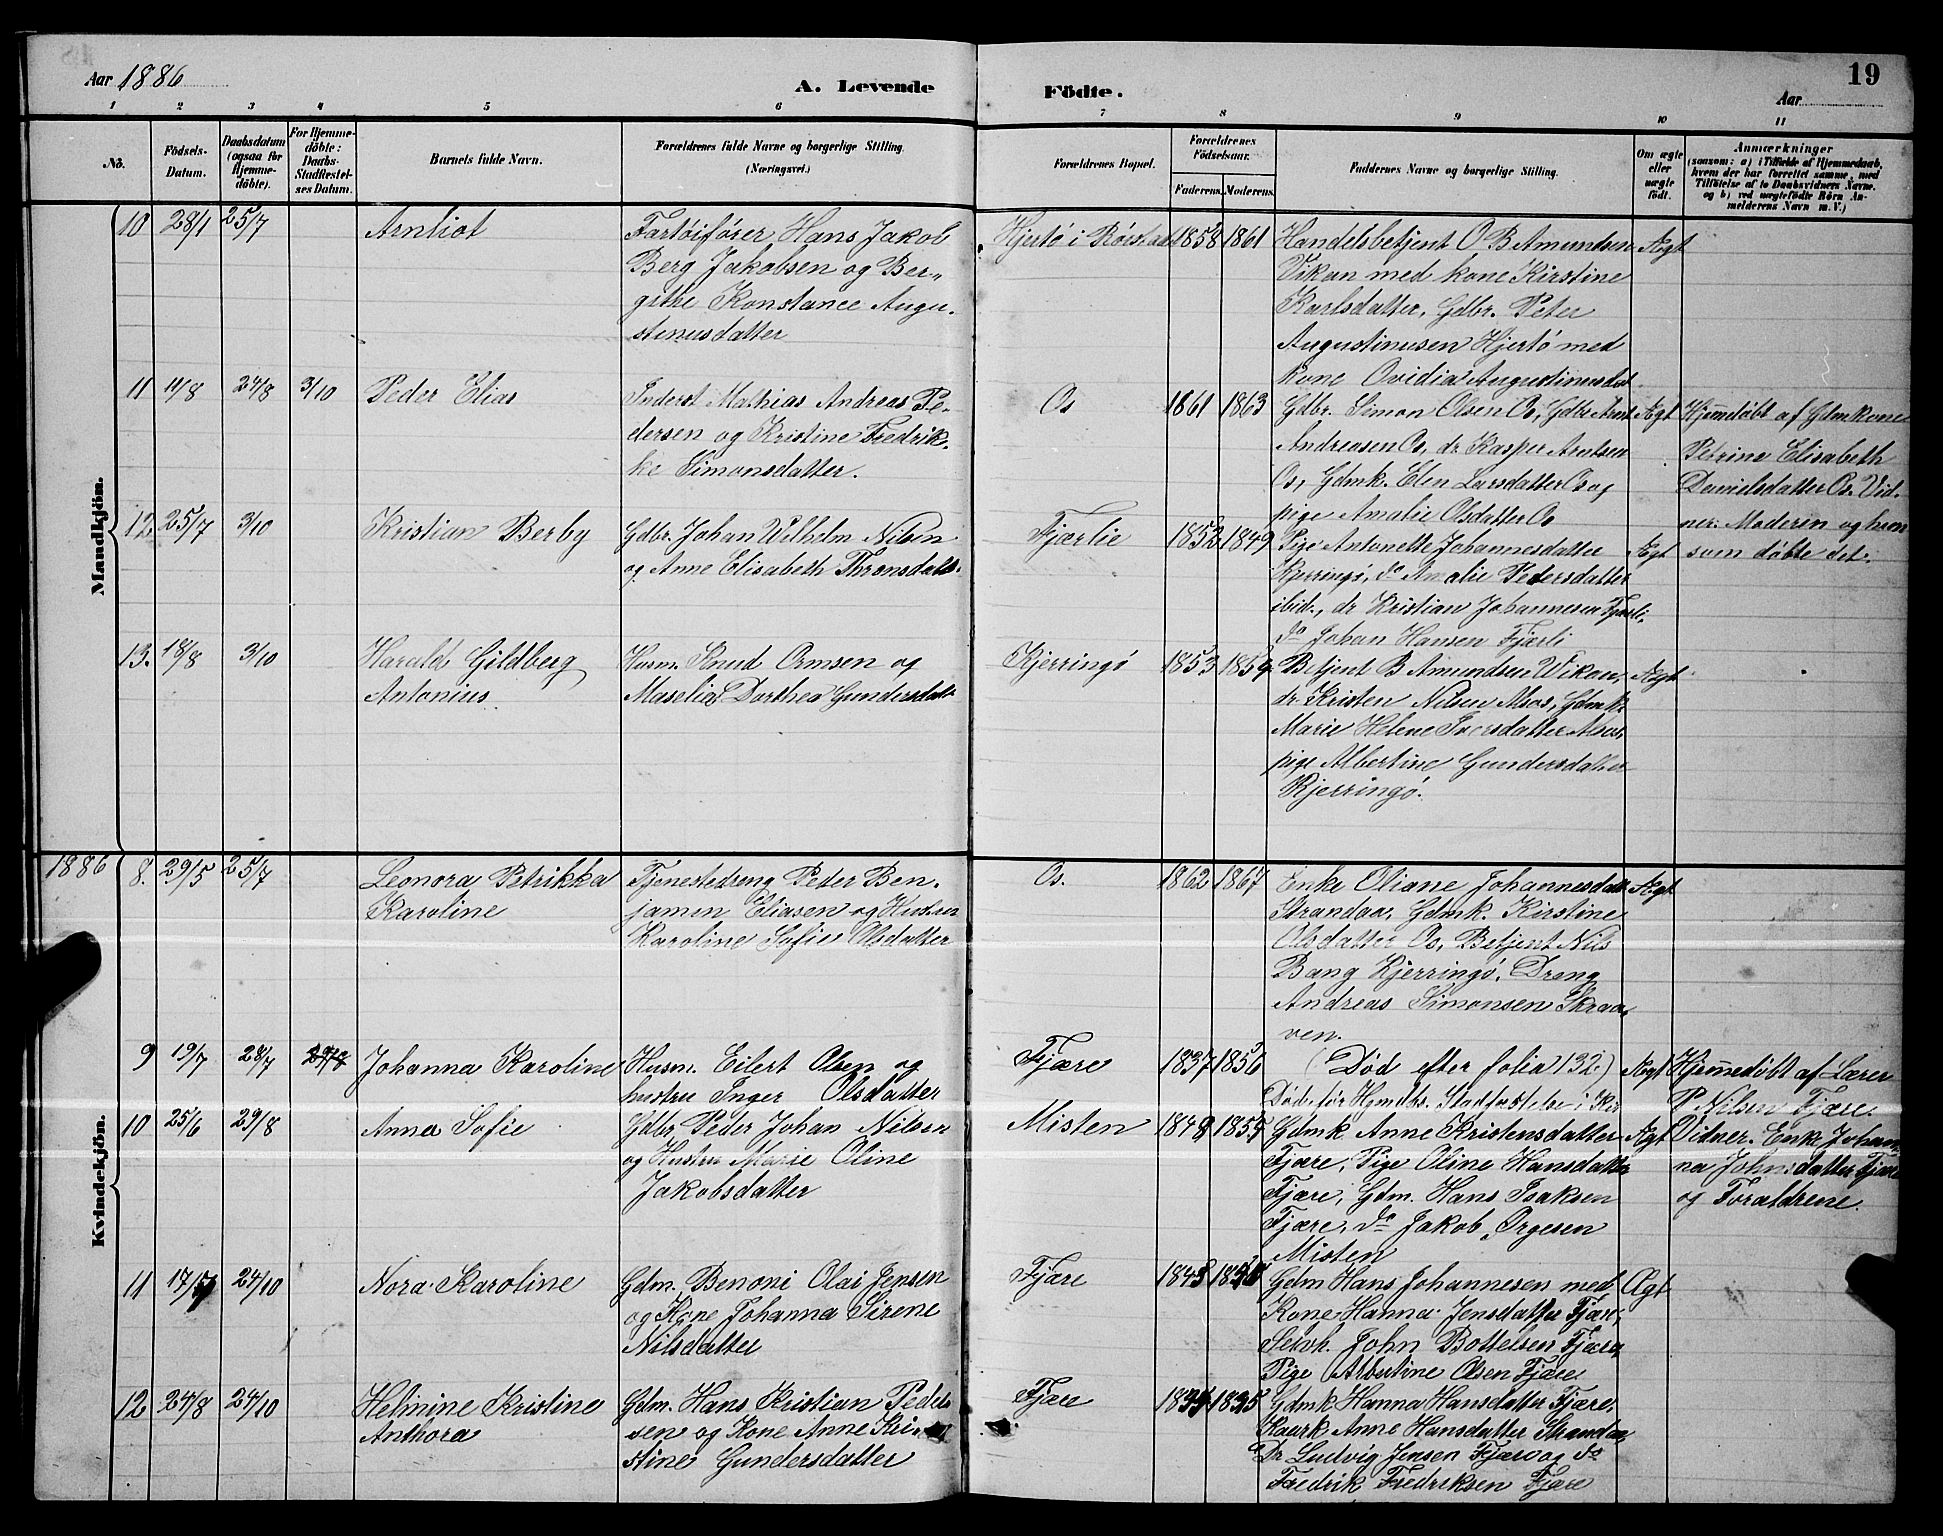 Aar 1886
A. Levende
Födte.
19
Aar
1 2 3 4 5 6 7 8 9 10 11
No.
Födsels-
Datum.
Daabsdatum
(ogsaa for
Hjemme-
döbte).
For Hjemme-
döbte:
Daabs-
Stadfæstel-
ses Datum.
Barnets fulde Navn.
Forældrenes fulde Navne og borgerlige Stilling.
(Næringsvei.)
Forældrenes Bopæl.
Forældrenes
Födselsaar.
Faderens. Moderens.
Faddernes Navne og borgerlige Stilling.
Om ægte
eller
uægte
födt.
Anmærkninger
(saasom: a) i Tilfælde af Hjemmedaab,
hvem der har forrettet samme, med
Tilföielse af to Daabsvidners Navne.
og b) ved uægtefödte Börn An-
melderens Navn m. V.)
Mandkjön.
10 28/1 25/7
Arnliot
Fartöiförer Hans Jakob
Berg Jakobsen og Ber-
githe Konstance Augu-
stinusdatter
Hjertö i 1858 1861
Handelsbetjent O B Amundsen
Vikan med kone Kirstine
Karlsdatter, Gdbr. Peter
Augustinusen Hjertö med
kone Ovidia Augustinusdat
Ægt
11 11/8 24/8 3/10
Peder Elias
Inderst Mathias Andreas Pe-
dersen og Kristine Fredrik-
ke Simonsdatter.
Os 1861 1863
Gdbr. Simon Olsen Os, Gdbr Arnt
Andreasen Os, dr Kasper Arntsen
Os, Gdmk. Elen Larsdatter Os og
pige Amalie Olsdatter Os
Ægt
Hjemmedöbt af Gdmkone
Petrine Elisabeth
Danielsdatter Os. Vid-
ner: Moderen og hun
som döbte det.
12 25/7 3/10
Kristian Berby
Gdbr. Johan Wilhelm Nilsen
og Anne Elisabeth Thronsdatt.
Fjærlie 1852 1849
Pige Antonette Johannesdatter
Kjerringö, do Amalie Pedersdatter
ibid., dr Kristian Johannesen Fjærli,
do Johan Hansen Fjærli
Ægt
13. 18/8 3/10
Harald Gildberg
Antonius
Husm. Knud Ormsen og
Maselia Dorthea Gundersdatt
Kjerringö 1853 1859
Betjent B Amundsen Vikan,
dr Kristen Nilsen Alsos, Gdmk.
Marie Helene Iversdatter Alsos,
pige Albertine Gundersdatter
Kjerringö.
Ægt
1886
Kvindekjön.
8. 29/5 25/7
Leonora Petrikka
Karoline
Tjenestedreng Peder Ben-
jamen Eliasen og Hustru
Karoline Sofie Olsdatter
Os. 1862 1867
Enke Oliane Johannesdatt
Strandaa, Gdmk. Kirstine
Olsdatter Os, Betjent Nils
Bang Kjerringö, Dreng
Andreas Simonsen Skraa-
ven.
Ægt
9 19/7 28/7 29/8
Johanna Karoline
Husm. Eilert Olsen og
hustru Inger Olsdatter
Fjære 1837 1856
(Död efter folia 132)
Död för Hjmdbs. Stadfæstelse i Kir
Ægt
Hjemmedöbt af Lærer
P Nilsen Fjære.
Vidner. Enke Johan-
na Johnsdatter Fjære
og Forældrene.
10 25/6 29/8
Anna Sofie
Gdbr Peder Johan Nilsen
og Hustru Marie Oline
Jakobsdatter
Misten 1848 1855
Gdmk Anne Kristensdatter
Fjære, Pige Oline Hansdatter
Fjære, Gdm. Hans Isaksen
Fjære, do Jakob Örgesen
Misten
Ægt
11 17/7 24/10
Nora Karoline
Gdm. Benoni Olai Jensen
og Kone Johanna Sirene
Nilsdatter
Fjære
Gdm Hans Johannesen med
Kone Hanna Jensdatter Fjære,
Selvh. John Bottelsen Fjære,
Pige Albertine Olsen Fjære
Ægt
12 24/8 24/10
Helmine Kristine
Anthora
Gdm. Hans Kristian Peder
sen og Kone Anne Kri-
stine Gundersdatter
Fjære
Gdmk Hanna Hansdatter Fjære.
Anne Hansdatter Strandaa,
Dr Ludvig Jensen Fjære og do
Fredrik Fredriksen Fjære